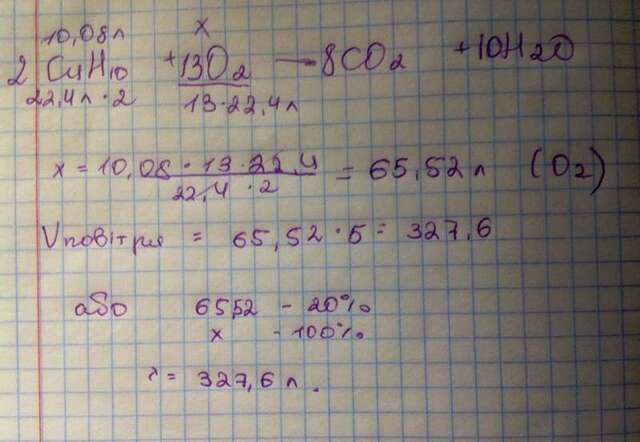 10,08л x
2 C4H10 + 13O2 — 8CO2 + 10H2O
22,4л · 2 13 · 22,4л
x = 10,08 · 13 · 22,4 / 22,4 · 2 = 65,52 л (O2)
Vповітря = 65,52 · 5 = 327,6
або 6552 - 20%
x - 100%
x = 327,6 л.